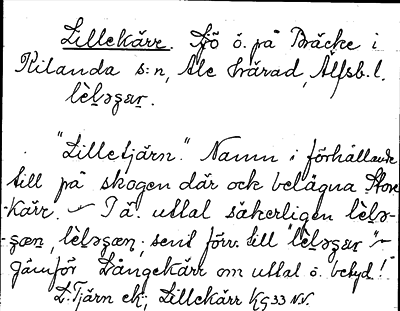 Lillekärr. Sjö ö. på Bräcke i
Kilanda s:n, Ale härad, Älfsb. l.
lèləʒar.
"Lilletjärn." Namn i förhållande
till på skogen där ock belägna Stora
Kärr. — Tä. uttal säkerligen lèlə-
ʒæn, lèləʒæn, sent förv. till "lèləʒar" —
Jämför Långekärr om uttal ö. betyd!
L. Tjärn ek; Lillekärr Kg 33 NV.